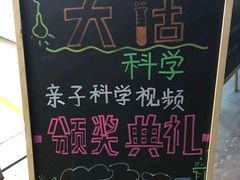 大咕
科学
亲子科学视频
颁奖典礼